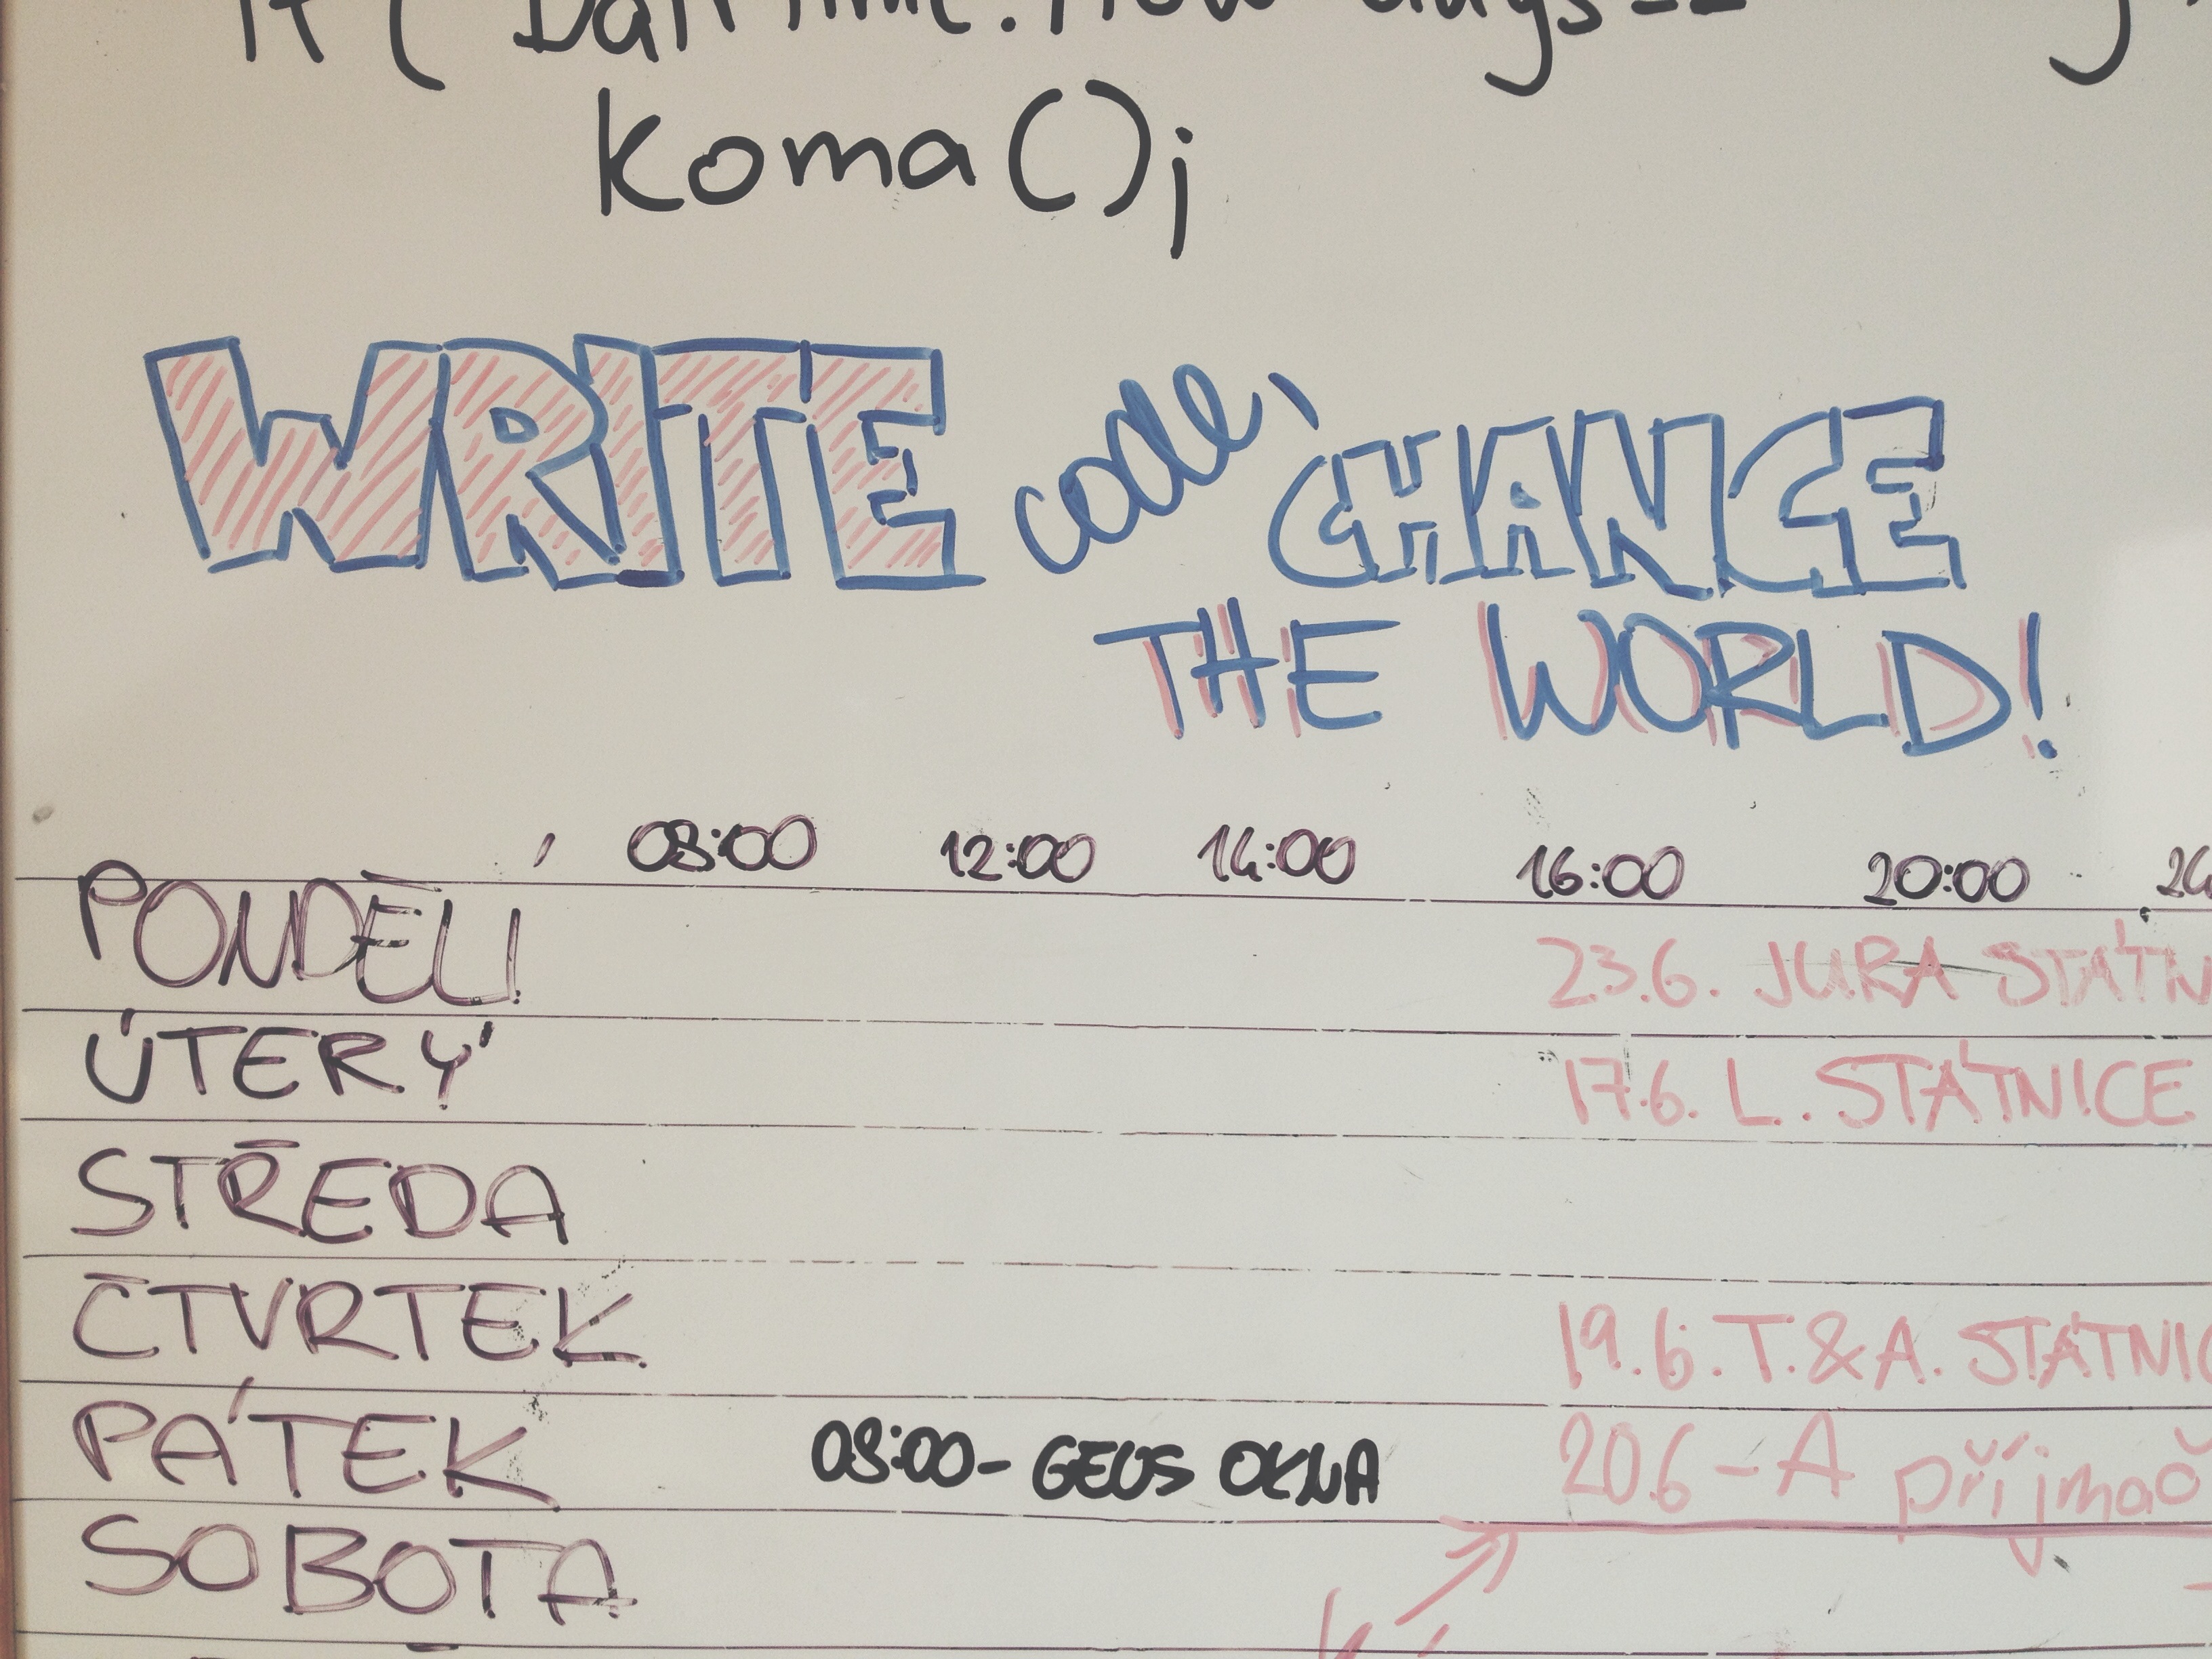 if ( DateTime.Now
koma();
WRITE code, CHANGE
THE WORLD!
08:00 12:00 14:00 16:00 20:00
PONDĚLÍ 23.6. JURA
ÚTERÝ 17.6. L. STÁTNICE
STŘEDA
ČTVRTEK 19.6. T.&A.
PÁTEK 08:00- GEUS OKNA 20.6 - A
SOBOTA